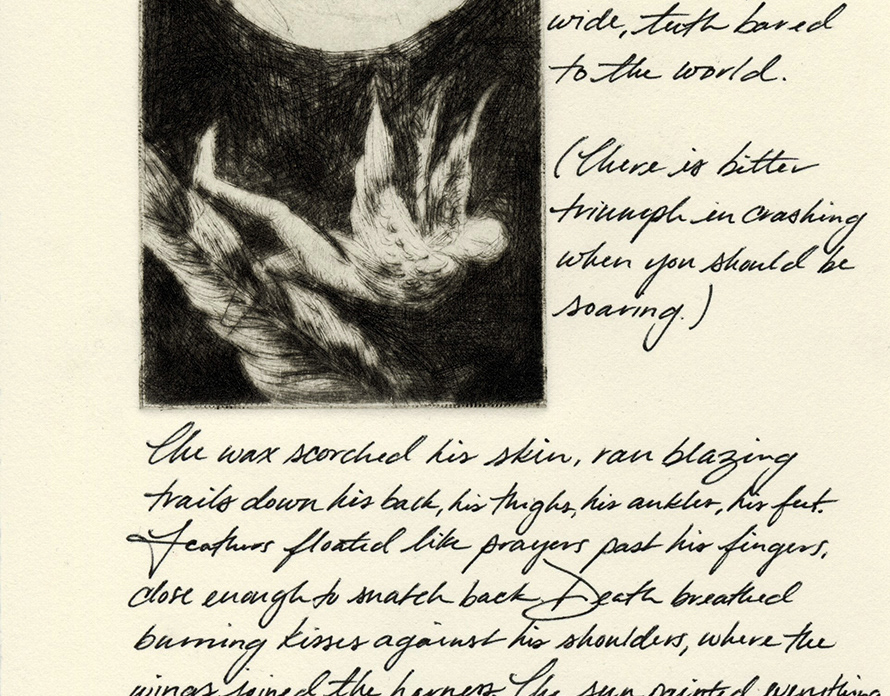 wide, teeth bared
to the world.
(There is bitter
triumph in crashing
when you should be
soaring.)
The wax scorched his skin, ran blazing
trails down his back, his thighs, his ankles, his feet.
Feathers floated like prayers past his fingers,
close enough to snatch back. Death breathed
burning kisses against his shoulders, where the
wings joined the harness. The sun painted everything